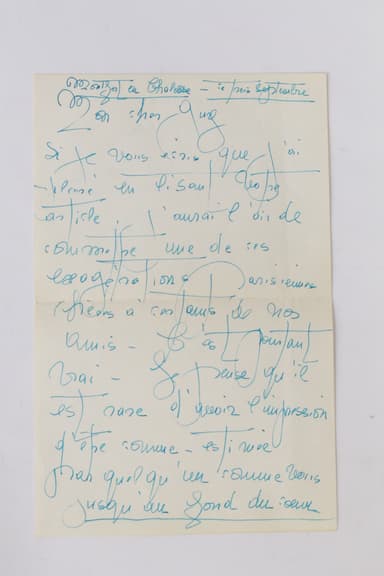 en Chalosse - septembre
Mon cher Guy
Si je vous écris que j'ai
en lisant votre
article, j'aurai l'air de
commettre une de ces
exagérations Parisiennes
chères à certains de nos
amis - C'est pourtant
vrai - Je pense qu'il
est rare d'avoir l'impression
d'être comme - estimé
par quelqu'un comme vous
jusqu'au fond du cœur